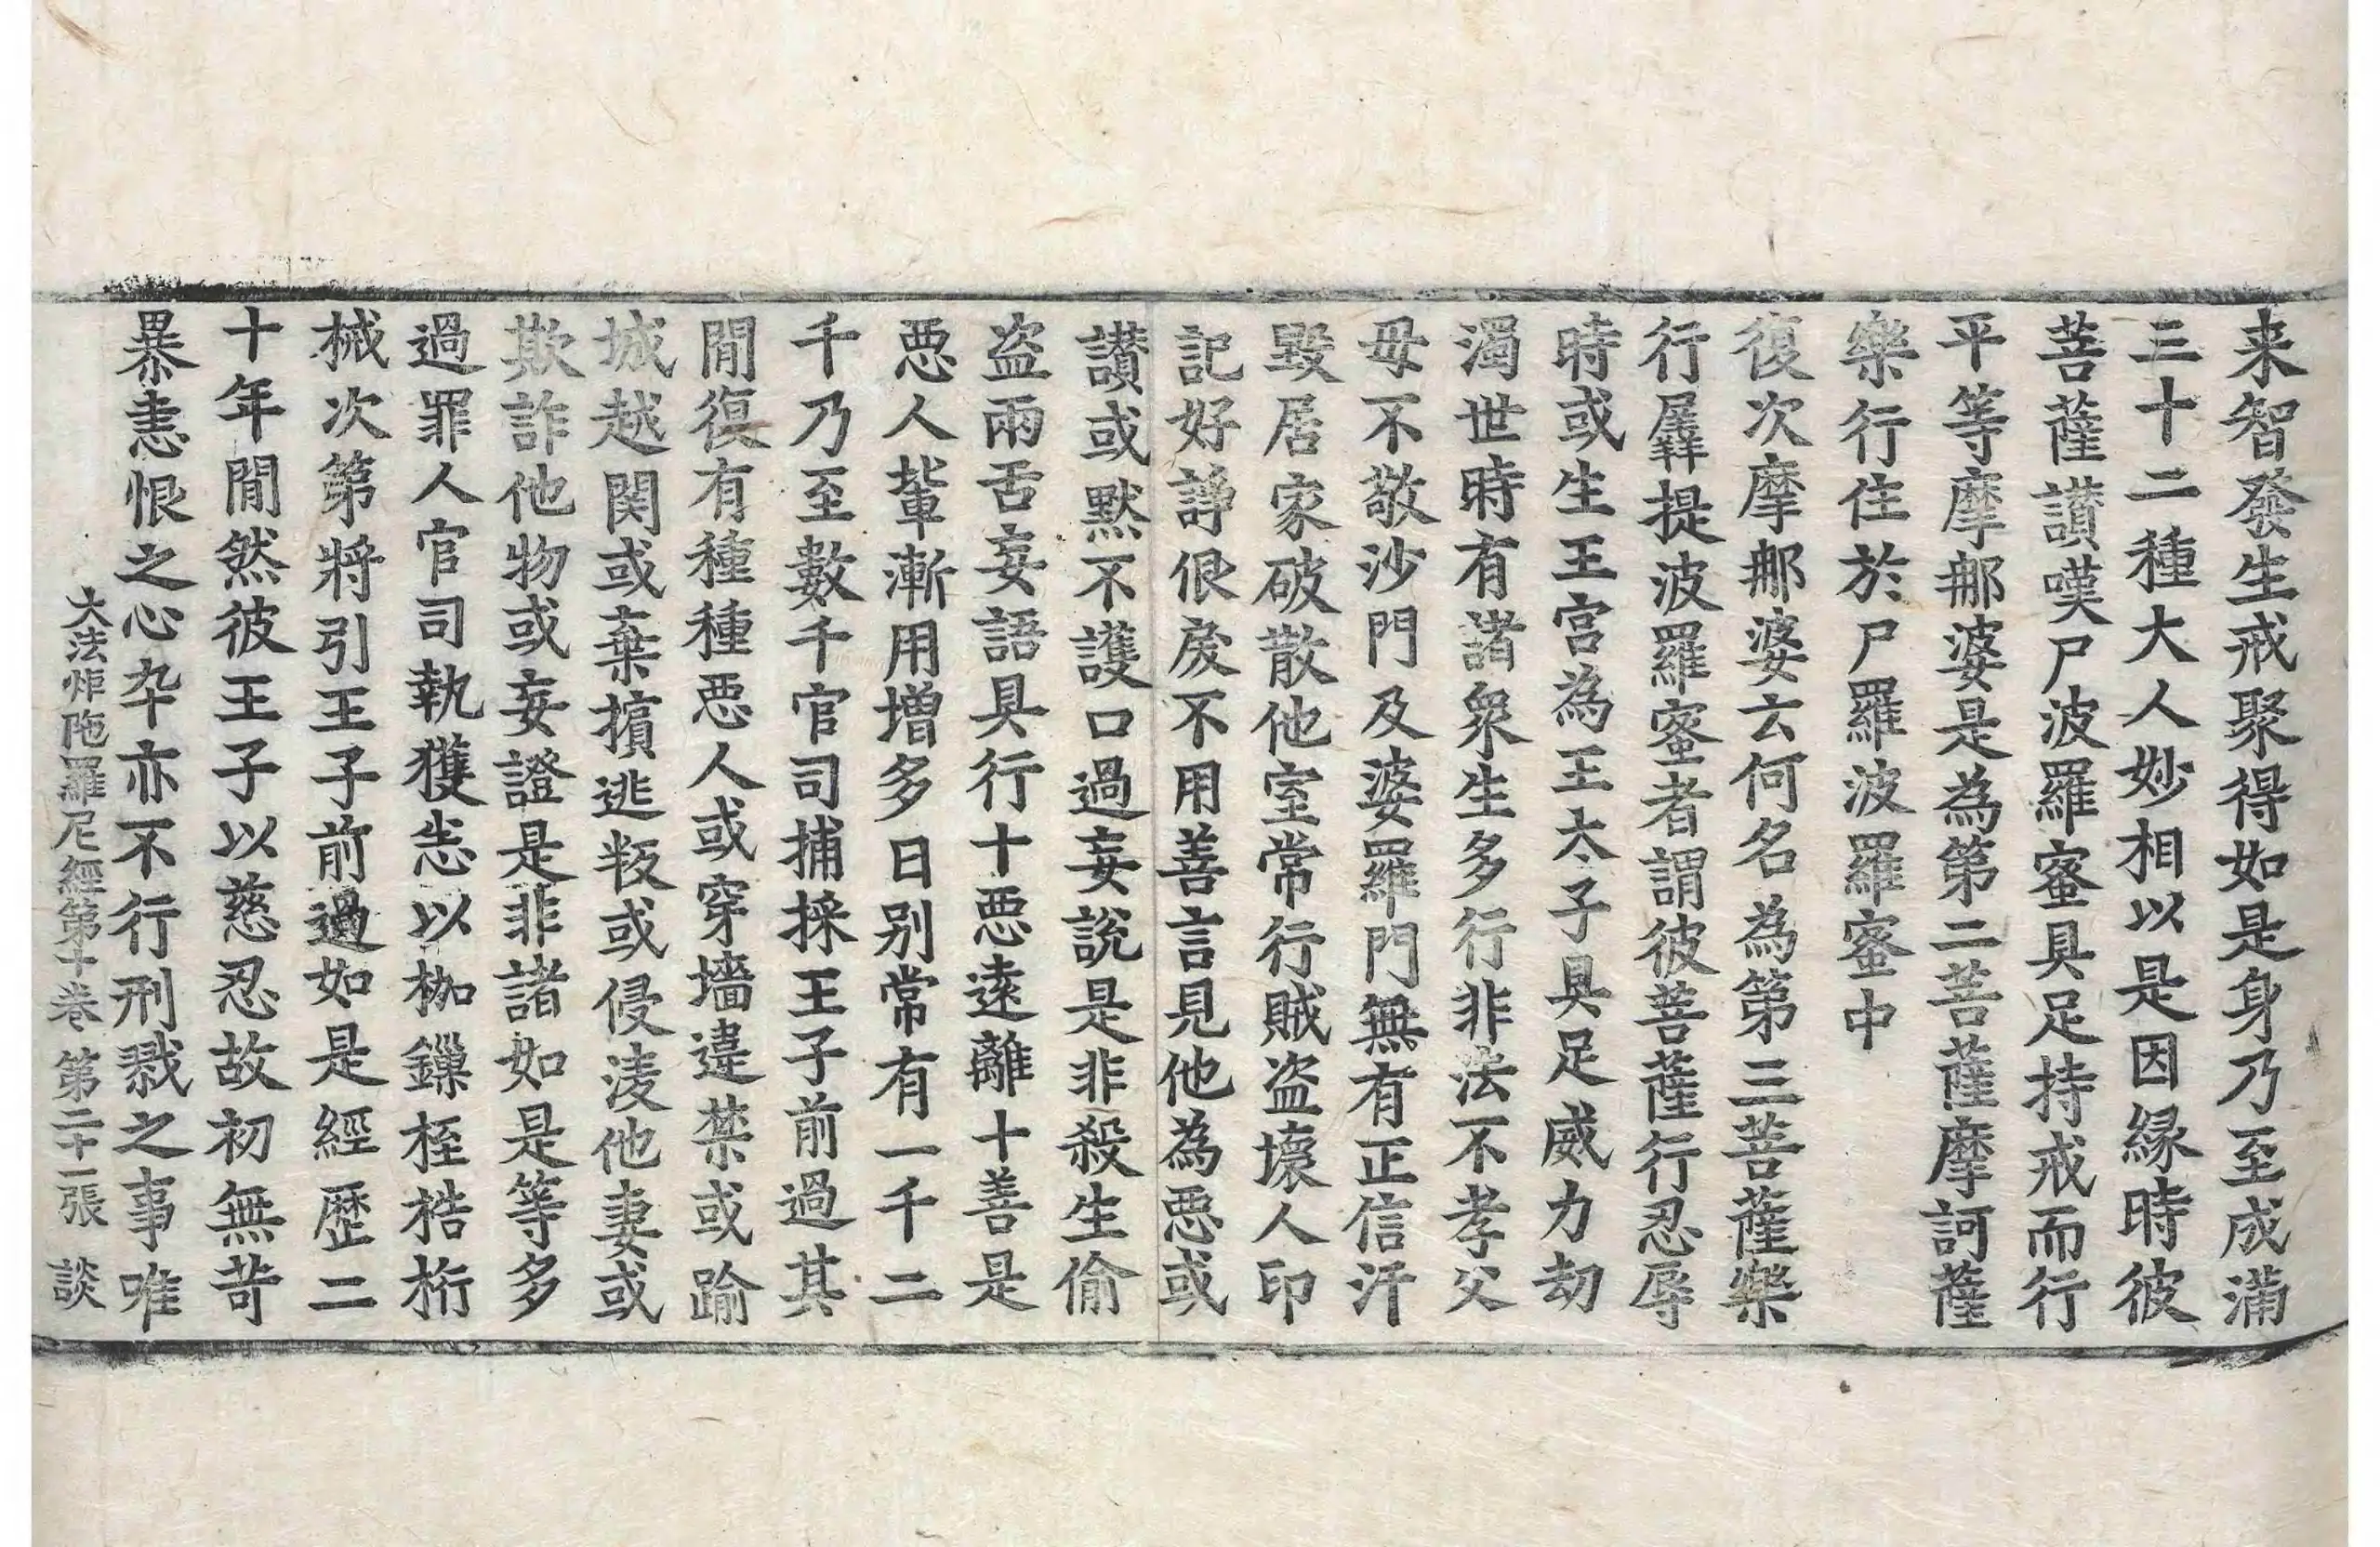 来智發生戒聚得如是身乃至成滿
三十二種大人妙相以是因縁時彼
菩薩讃嘆尸波羅蜜具足持戒而行
平等摩那婆是為第二菩薩摩訶薩
樂行住於尸羅波羅蜜中
復次摩那婆云何名為第三菩薩樂
行羼提波羅蜜者謂彼菩薩行忍辱
時或生王宫為王太子具足威力劫
濁世時有諸衆生多行非法不孝父
母不敬沙門及婆羅門無有正信汙
毀居家破散他室常行賊盗壞人印
記好諍佷戾不用善言見他為惡或
讃或黙不護口過妄說是非殺生偷
盗兩舌妄語具行十惡遠離十善是
惡人輩漸用増多日别常有一千二
千乃至數千官司捕採王子前過其
間復有種種惡人或穿墻違禁或踰
城越関或棄擯逃叛或侵淩他妻或
欺詐他物或妄證是非諸如是等多
過罪人官司執獲恙以枷鏁桎梏桁
械次第將引王子前過如是經歷二
十年間然彼王子以慈忍故初無苛
暴恚恨之心卒亦不行刑戮之事唯
大法炬陁羅尼經第十卷 第二十一張 談